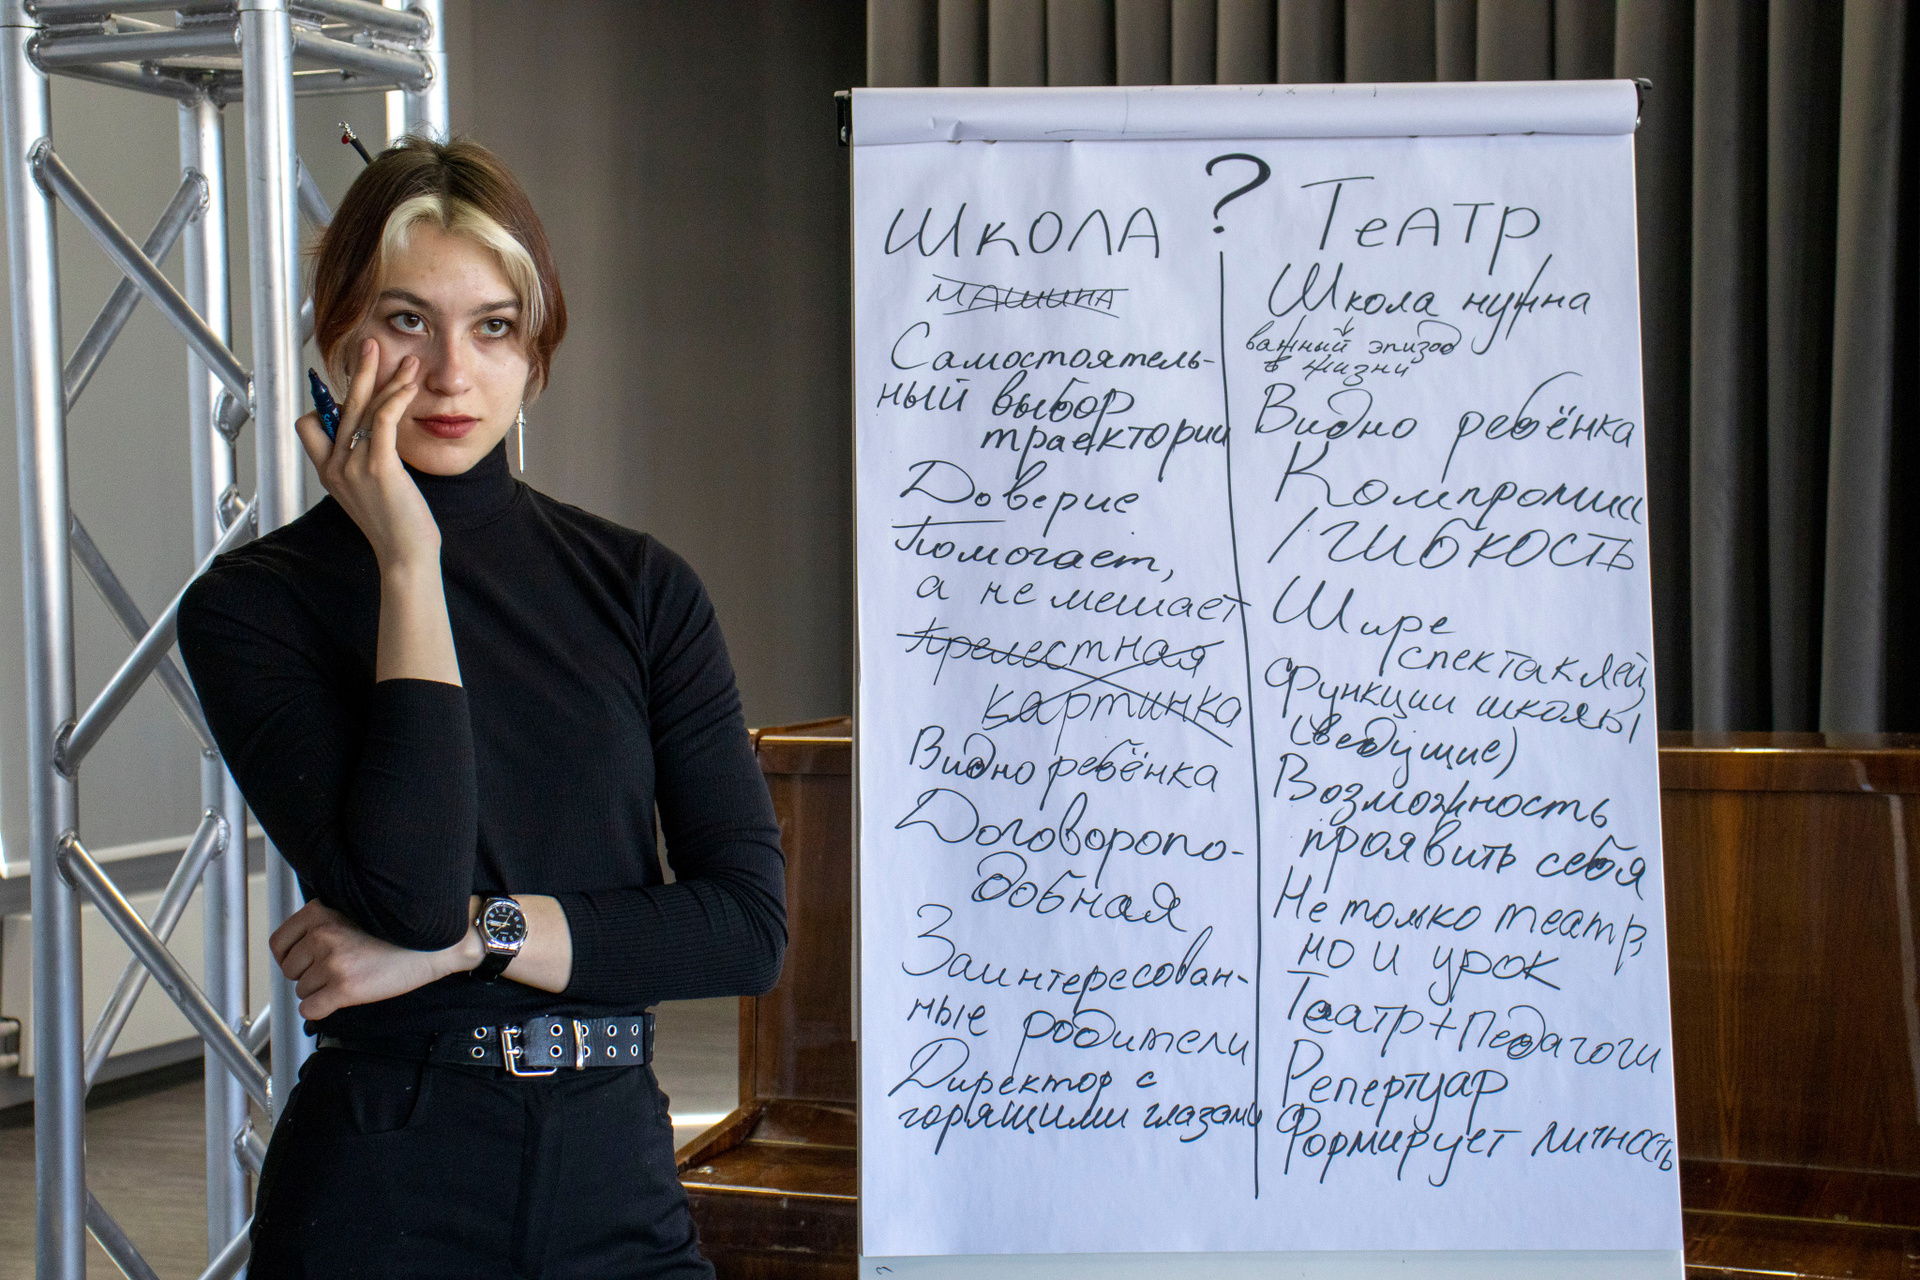 ?
ШКОЛА
МАШИНА
Самостоятель-
ный выбор
траектории
Доверие
Помогает,
а не мешает
Прелестная
картинка
Видно ребёнка
Договоропо-
добная
Заинтересован-
ные родители
Директор с
горящими глазами
ТеАТР
Школа нужна
важный эпизод
в жизни
Видно ребёнка
Компромисс
/ГИБКОСТЬ
Шире
спектаклей
Функции школы
(ведущие)
Возможность
проявить себя
Не только театр,
но и урок
Театр+Педагоги
Репертуар
Формирует личность